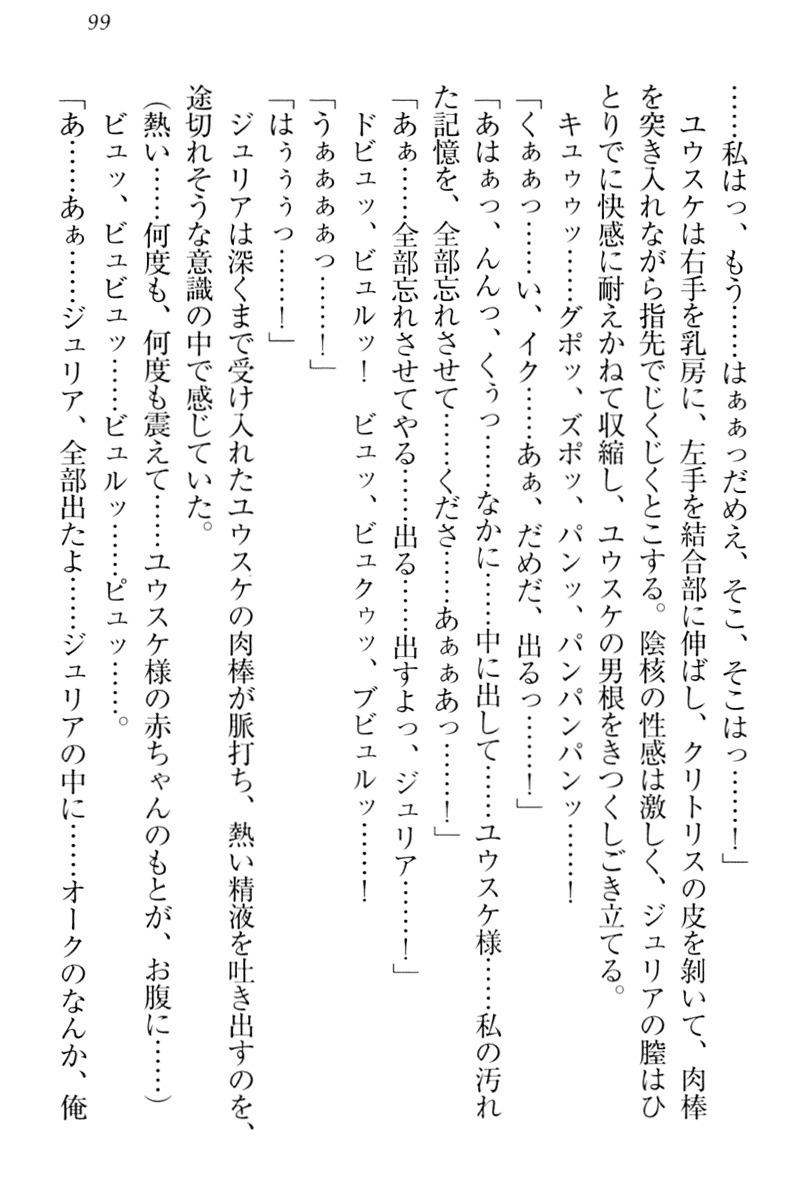 99
……私はっ、もう……はぁぁっだめえ、そこ、そこはっ……！」
ユウスケは右手を乳房に、左手を結合部に伸ばし、クリトリスの皮を剝いて、肉棒
を突き入れながら指先でじくじくとこする。陰核の性感は激しく、ジュリアの膣はひ
とりでに快感に耐えかねて収縮し、ユウスケの男根をきつくしごき立てる。
キュゥゥッ……グポッ、ズポッ、パンッ、パンパンパンッ……！
「くぁぁっ……い、イク……あぁ、だめだ、出るっ……！」
「あはぁっ、んんっ、くぅっ……なかに……中に出して……ユウスケ様……私の汚れ
た記憶を、全部忘れさせて……くださ……あぁぁあっ……！」
「あぁ……全部忘れさせてやる……出る……出すよっ、ジュリア……！」
ドビュッ、ビュルッ！　ビュッ、ビュクゥッ、ブビュルッ……！
「うぁぁぁぁっ……！」
「はぅぅぅっ……！」
ジュリアは深くまで受け入れたユウスケの肉棒が脈打ち、熱い精液を吐き出すのを、
途切れそうな意識の中で感じていた。
（熱い……何度も、何度も震えて……ユウスケ様の赤ちゃんのもとが、お腹に……）
ビュッ、ビュビュッ……ビュルッ……ピュッ……。
「あ……あぁ……ジュリア、全部出たよ……ジュリアの中に……オークのなんか、俺